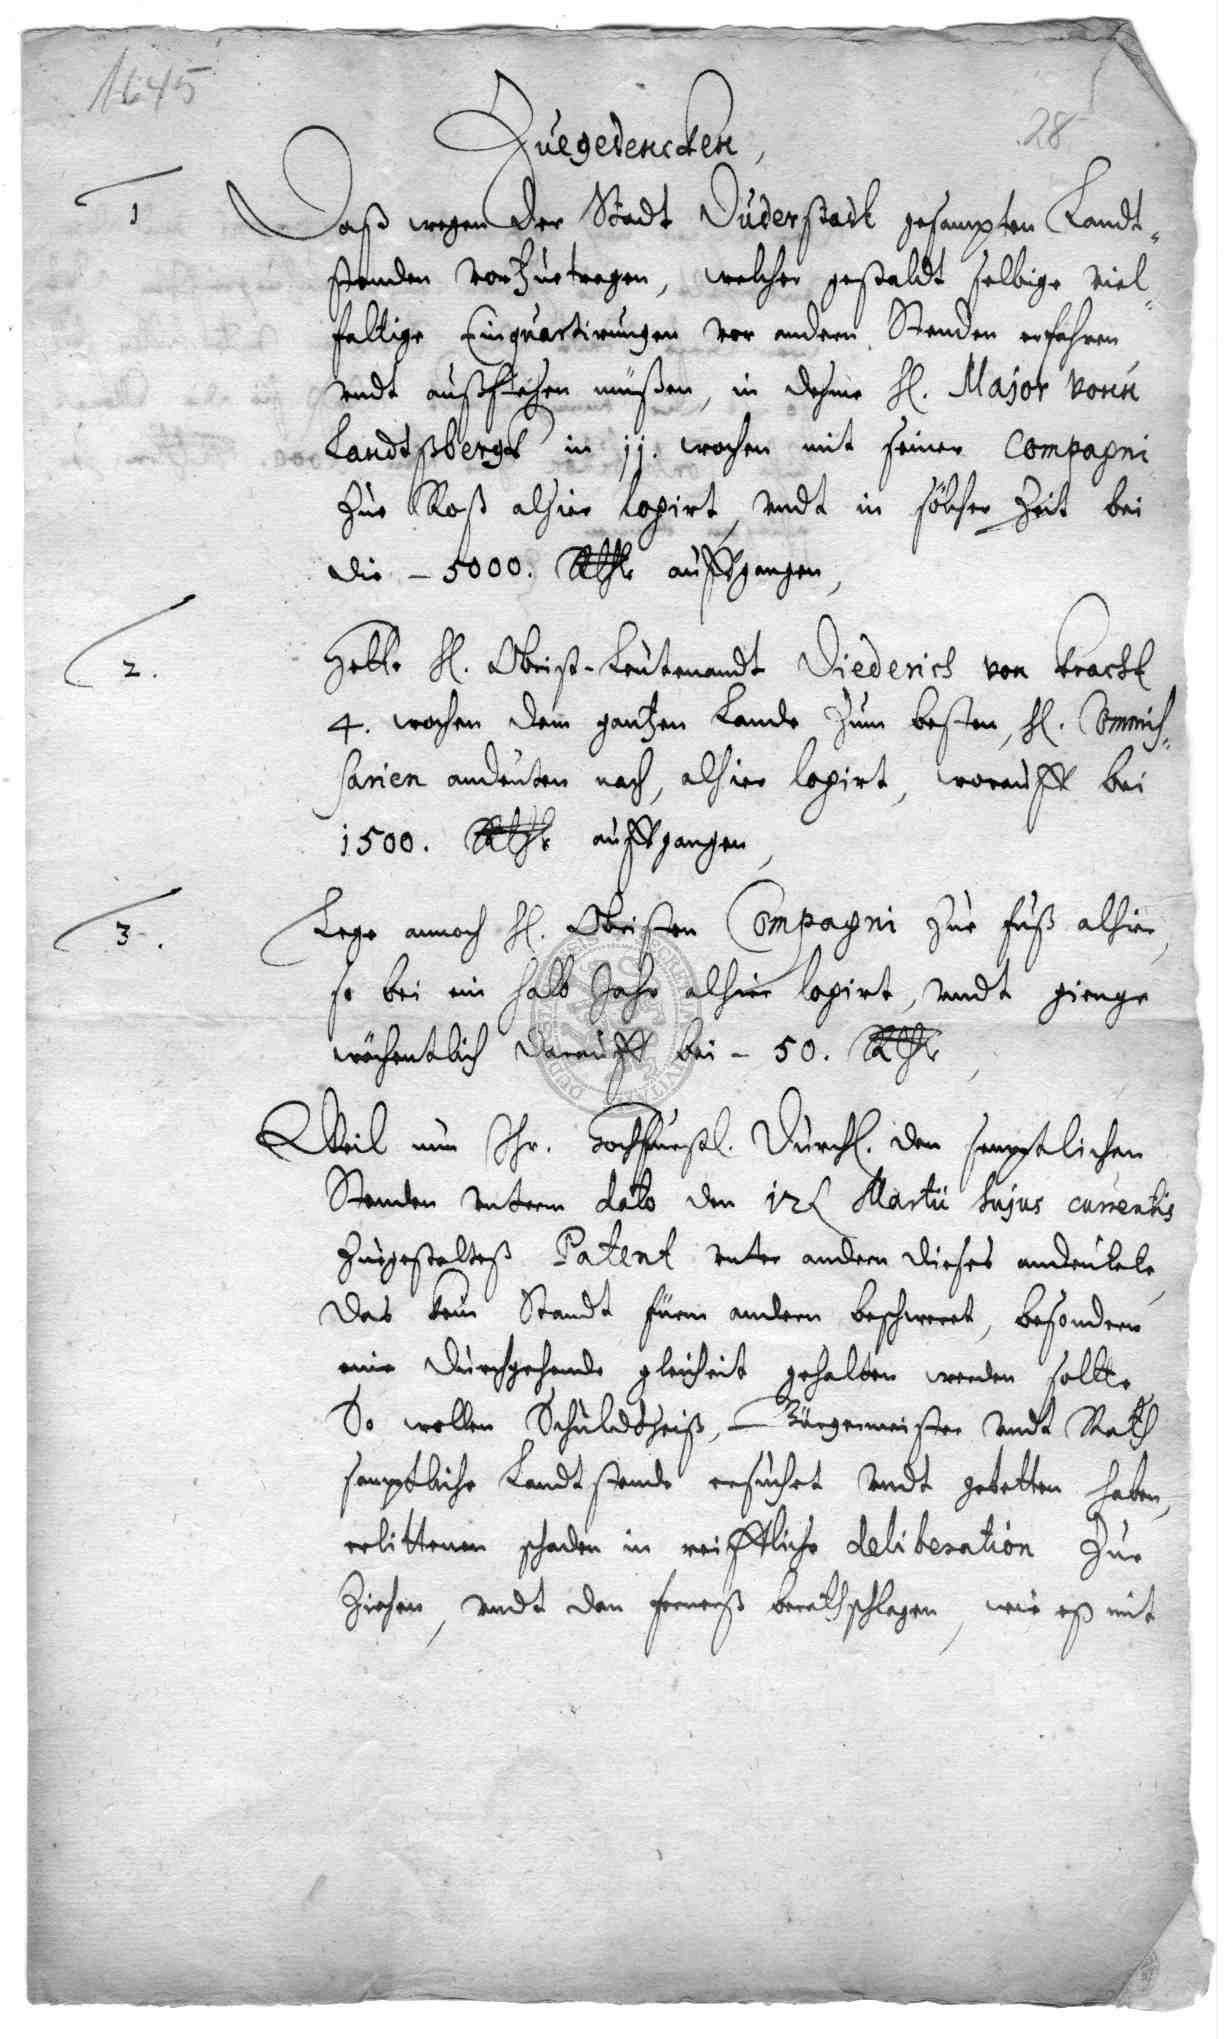 1645
28
Zuegedencken,
1 Daß wegen der Stadt Duderstadt gesampten Landt-
stenden vorzutragen, welcher gestaldt selbige viel-
faltige Einquartirungen vor andern Stenden erfahren
undt außstehen müßen, in dehme H. Major vonn
Landtßbergk in jj. wochen mit seiner Compagni
zue Roß alhier logirt, undt in solcher Zeit bei
die – 5000. Rthlr auffgangen,
2. Hette H. Obrist-Leutenandt Diederich von Bracht
4. wochen dem gantzen Lande zum besten, H. Commis-
sarien andeuten nach, alhier logirt, worauff bei
1500. Rthlr auffgangen,
3. Lege annoch H. Obristen Compagni zue Fuß alhier,
so bei ein halb Jahr alhier logirt, undt gienge
wöchentlich darauff bei – 50. Rthlr,
Weil nun Ihr. Hochfürstl. Durchl. den semptlichen
Stenden unterm dato den Martii hujus currentis
zugestelteß Patent unter andern dieses andeutete,
Das kein Standt fürm andern beschweret, besondern
eine durchgehende gleicheit gehalten werden sollte,
So wollen Schuldtheiß, Bürgermeister undt Rath
semptliche Landtstende ersuchet undt gebetten haben,
erlittenen schaden in reiffliche deliberation zue
Ziehen, undt den fernerß berathschlagen, wie eß mit